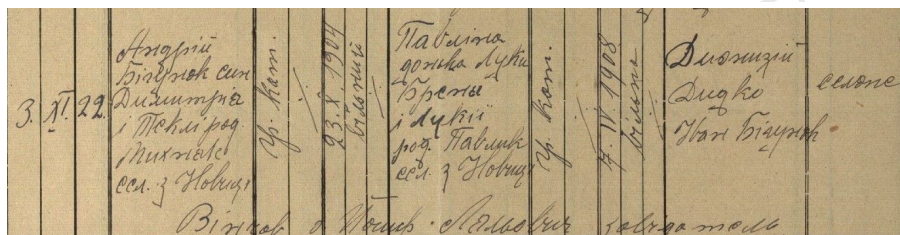 3. XI. 22.
Андрій
Бігуняк син
Димитрія
і Теклі род.
Михняк
сел. з Новиці
гр. кат.
23. X. 1904
вільний
Павліна
донька Луки
Брена
і Лукії
род. Павлик
сел. з Новиці
гр. кат.
7. IV. 1908
вільна
Дионизій
Дидко
Іван Бігуняк
селяне
Вінчав о. Йосиф
завідатель